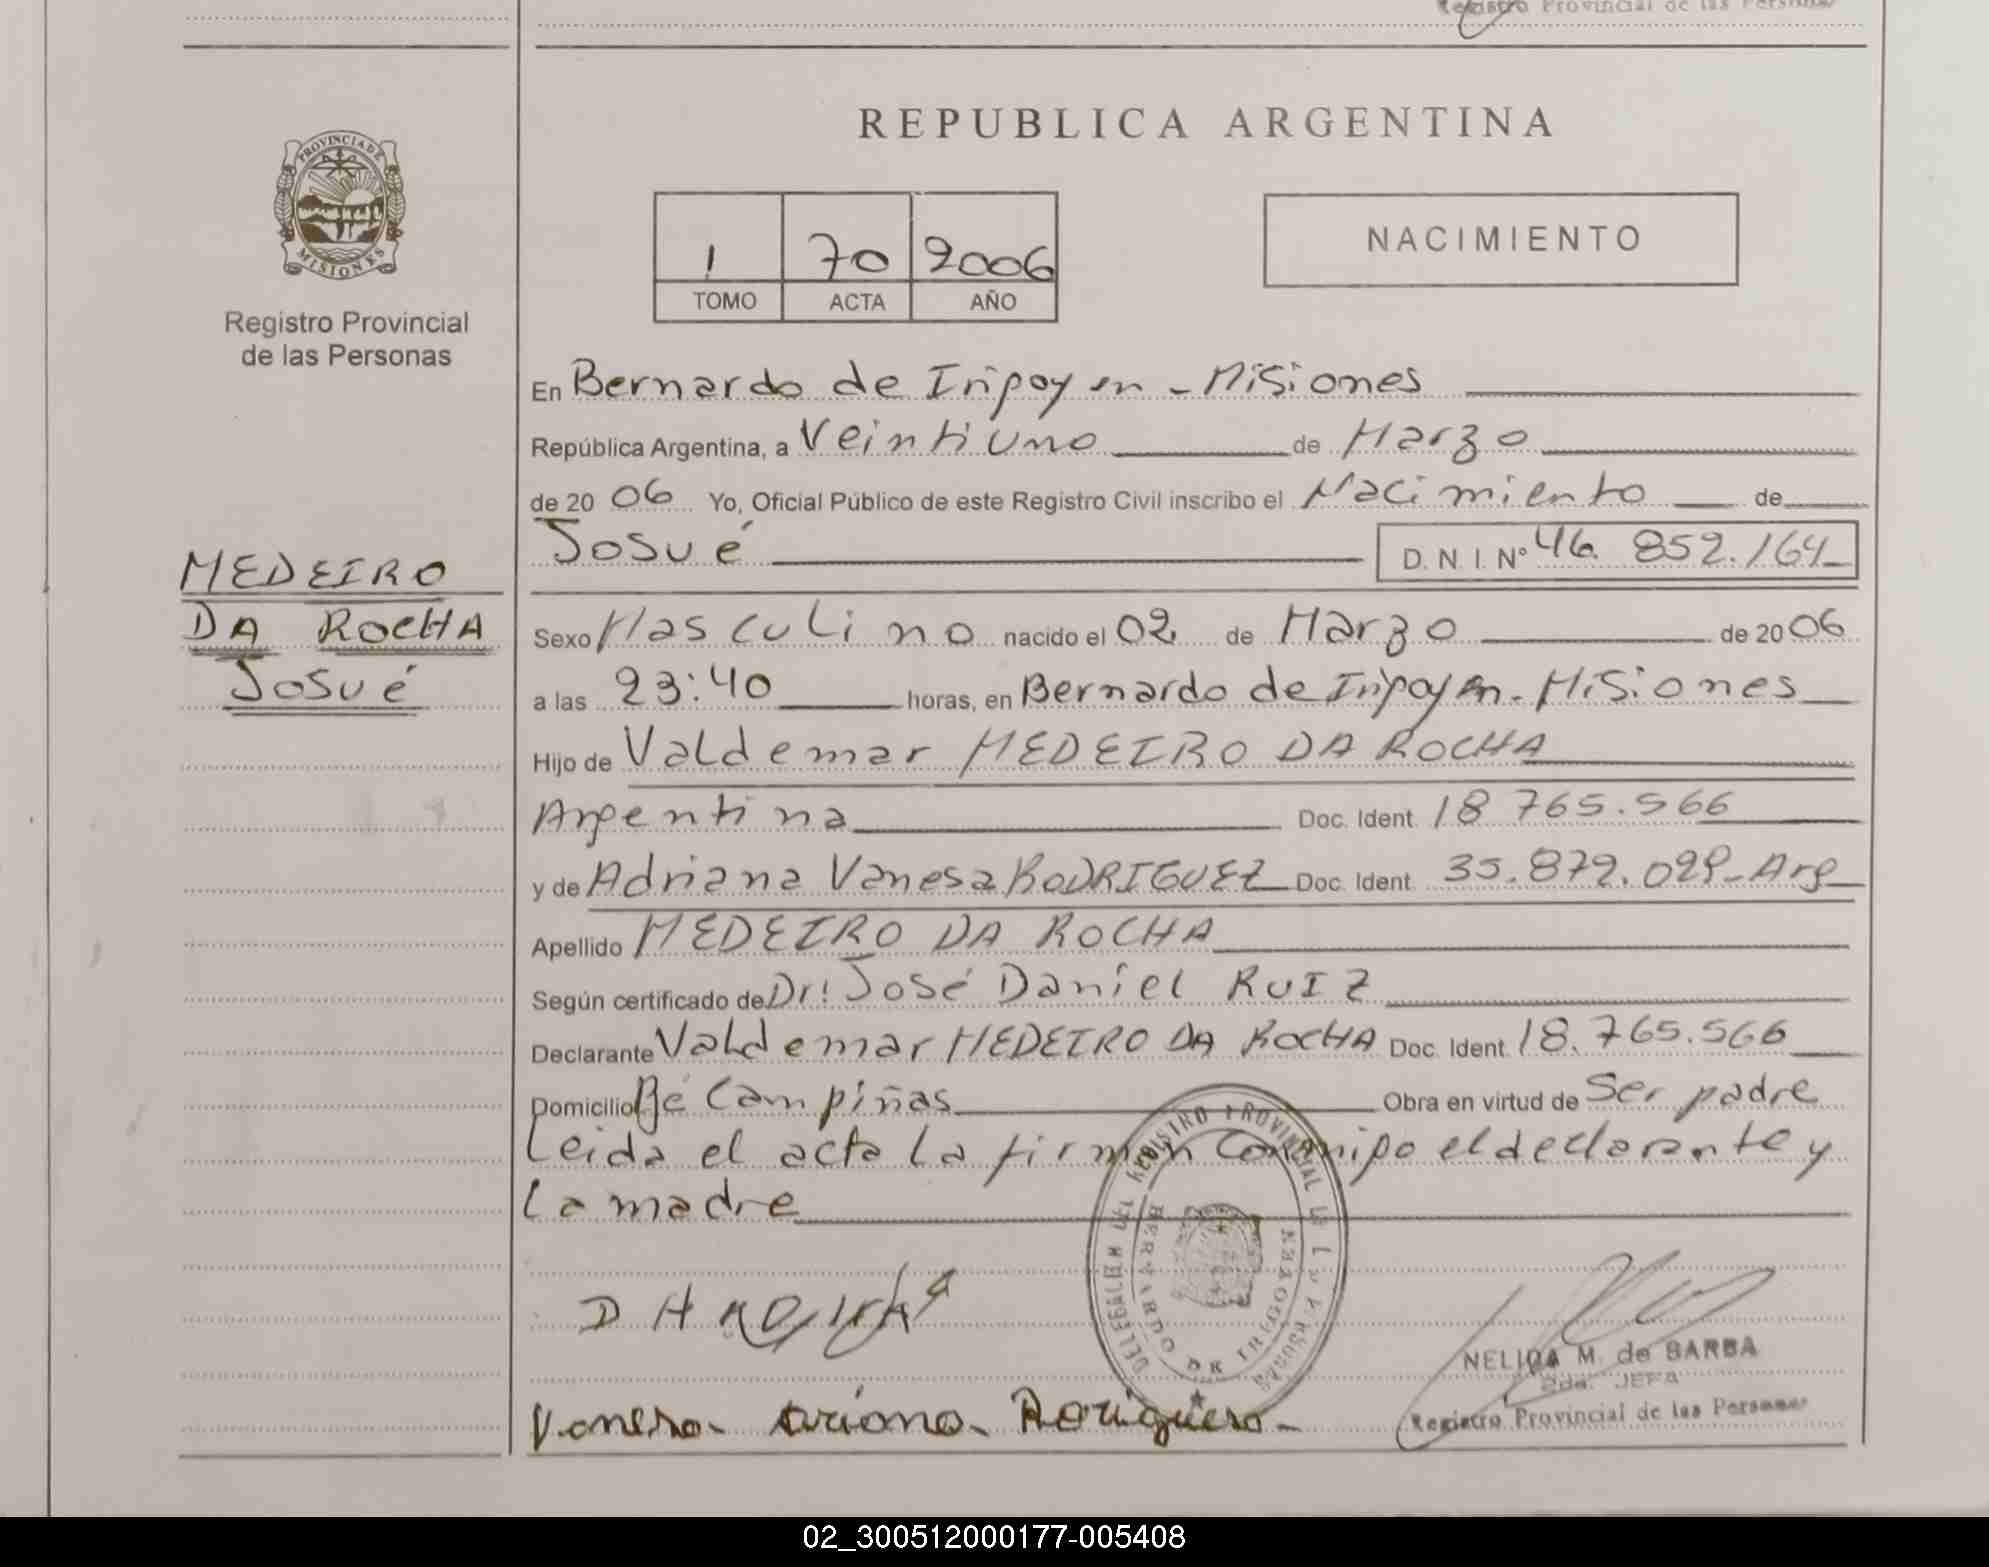 Registro Provincial de las Personas
REPUBLICA ARGENTINA
PROVINCIA DE
MISIONES
Registro Provincial
de las Personas
1 70 2006
TOMO ACTA AÑO
NACIMIENTO
En Bernardo de Iripoyen - Misiones
República Argentina, a Veintiuno de Marzo
de 20 06 Yo, Oficial Público de este Registro Civil inscribo el Nacimiento de
Josué D. N. I. Nº 46. 852.164
MEDEIRO
DA ROCHA
Josué
Sexo Masculino nacido el 02 de Marzo de 20 06
a las 23:40 horas, en Bernardo de Iripoyen - Misiones
Hijo de Valdemar MEDEIRO DA ROCHA
Argentina Doc. Ident. 18 765.566
y de Adriana Vanesa RODRIGUEZ Doc. Ident. 35.872.029 - Arg
Apellido MEDEIRO DA ROCHA
Según certificado de Dr: José Daniel RUIZ
Declarante Valdemar MEDEIRO DA ROCHA Doc. Ident. 18.765.566
Domicilio Bé Campiñas Obra en virtud de Ser padre
Leida el acta la firman conmigo el declarante y
la madre
REGISTRO PROVINCIAL DE
BERNARDO DE IRIGOYEN
NELIDA M. de BARBA
2da. JEFA
Registro Provincial de las Personas
02_300512000177-005408